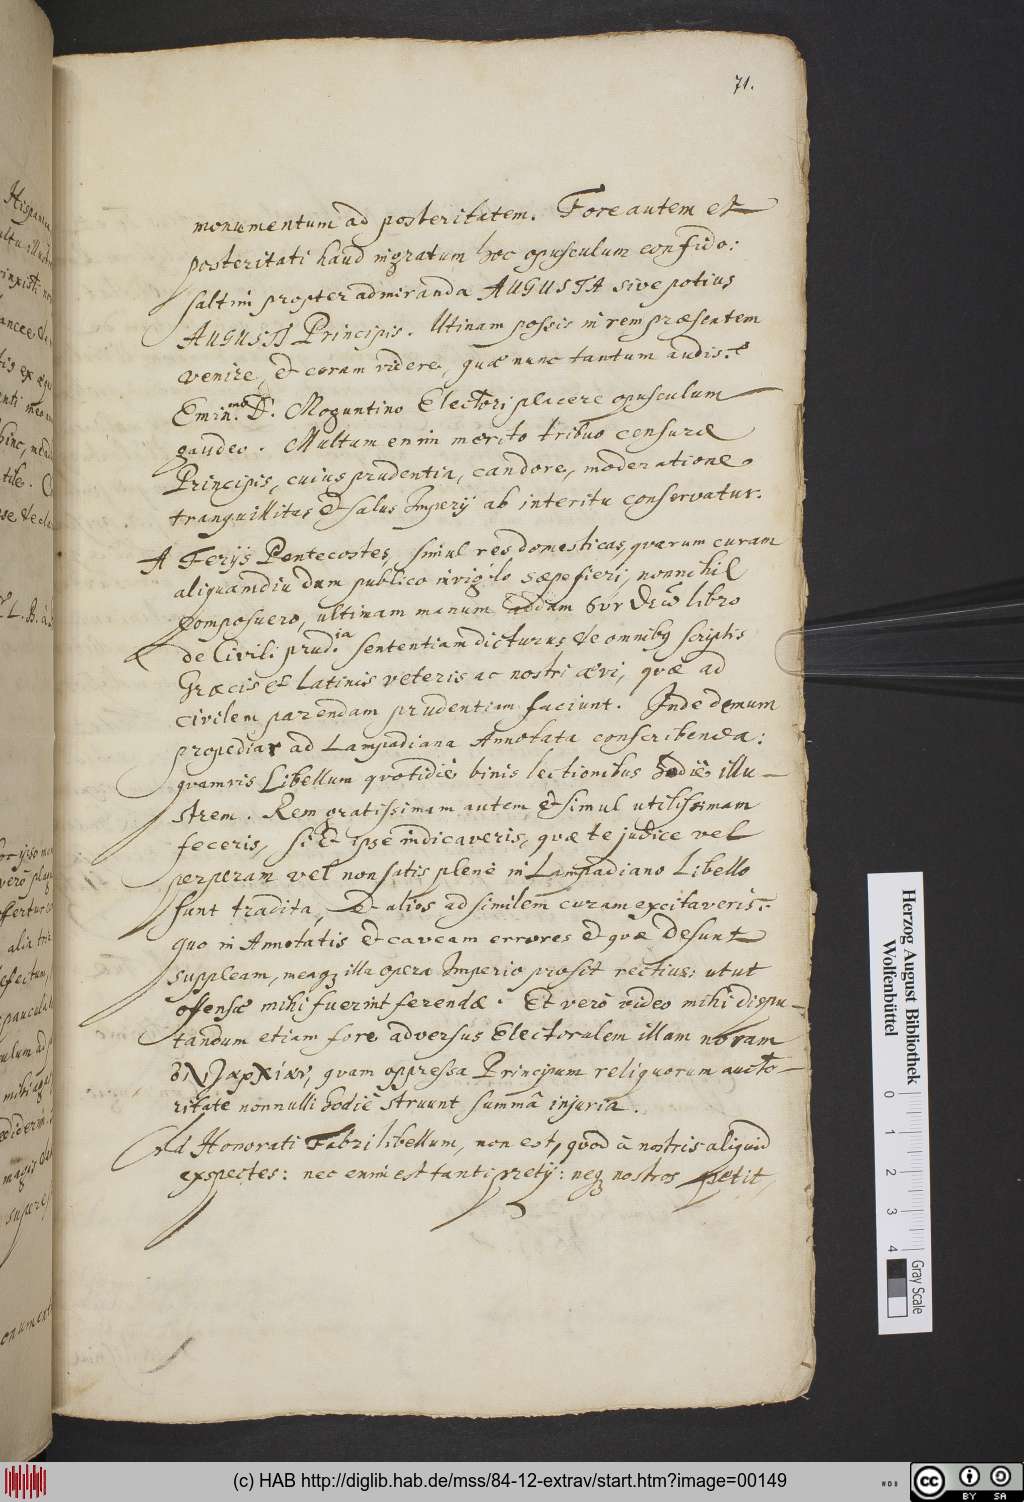 71.
monumentum ad posteritatem. Fore autem et
posteritati haud ingratum hoc opusculum confido:
saltim propter admiranda AUGUSTA sive potius
AUGUSTI Principis. Utinam possis in rem præsentem
venire, et coram videre, quæ nunc tantum audis.
Emin.mo D. Moguntino Electori placere opusculum
gaudeo. Multum enim merito tribuo censuræ
Principis, cuius prudentia, candore, moderatione
tranquillitas et salus Imperij ab interitu conservatur.
A Ferijs Pentecostes, simul res domesticas, quarum curam
aliquamdiu dum publico invigilo sæpe fieri, nonnihil
composuero, ultimam manum addam libro
de Civili prud.ia sententiam dicturus de omnibq scriptis
Græcis et Latinis veteris ac nostri ævi, quæ ad
civilem parendam prudentiam faciunt. Inde demum
propediar ad Lampadiana Annotata conscribenda:
quamvis Libellum quotidiè binis lectionibus hodiè illu-
strem. Rem gratissimam autem et simul utilissimam
feceris, si et ipse indicaveris, quæ te judice vel
perperam vel non satis plenè in Lampadiano Libello
sunt tradita, et alios ad similem curam excitaveris.
quo in Annotatis et caveam errores et quæ desunt
suppleam, meaq illa opera Imperio prosit rectius: utut
offensæ mihi fuerint ferendæ. Et verò video mihi dispu-
tandum etiam fore adversus Electoralem illam novam
quam oppressa Principum reliquorum aucto-
ritate nonnulli hodiè struunt summâ injuria.
Ad Honorati Fabri libellum, non est, quod à nostris aliquid
exspectes: nec enim est tanti pretij: neq nostros petit,
Herzog August Bibliothek
Wolfenbüttel
0 1 2 3 4
Gray Scale
(c) HAB http://diglib.hab.de/mss/84-12-extrav/start.htm?image=00149
cc BY SA